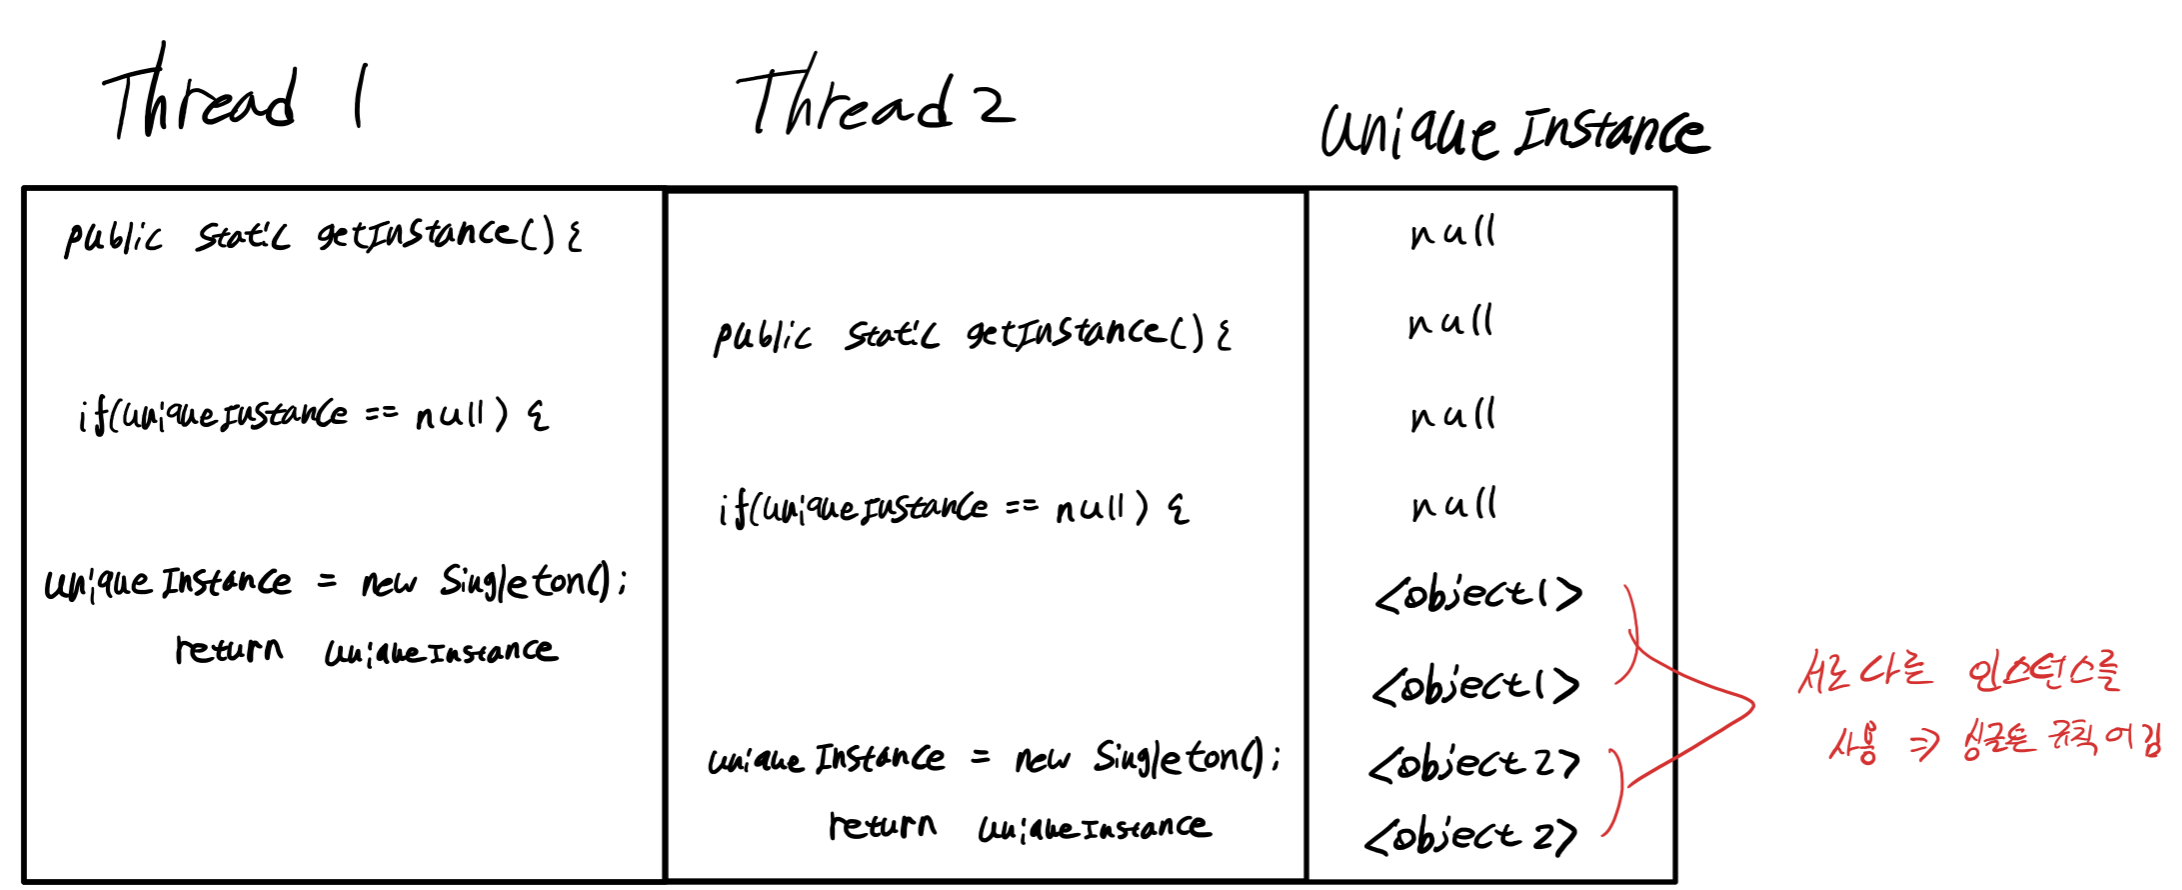 Thread 1
Thread 2
unique Instance
public static getInstance() {
null
public static getInstance() {
null
if(uniqueInstance == null) {
null
if(uniqueInstance == null) {
null
unique Instance = new Singleton();
<object1>
return uniqueInstance
<object1>
unique Instance = new Singleton();
<object2>
return uniqueInstance
<object2>
서로 다른 인스턴스를
사용 => 싱글톤 규칙 어김